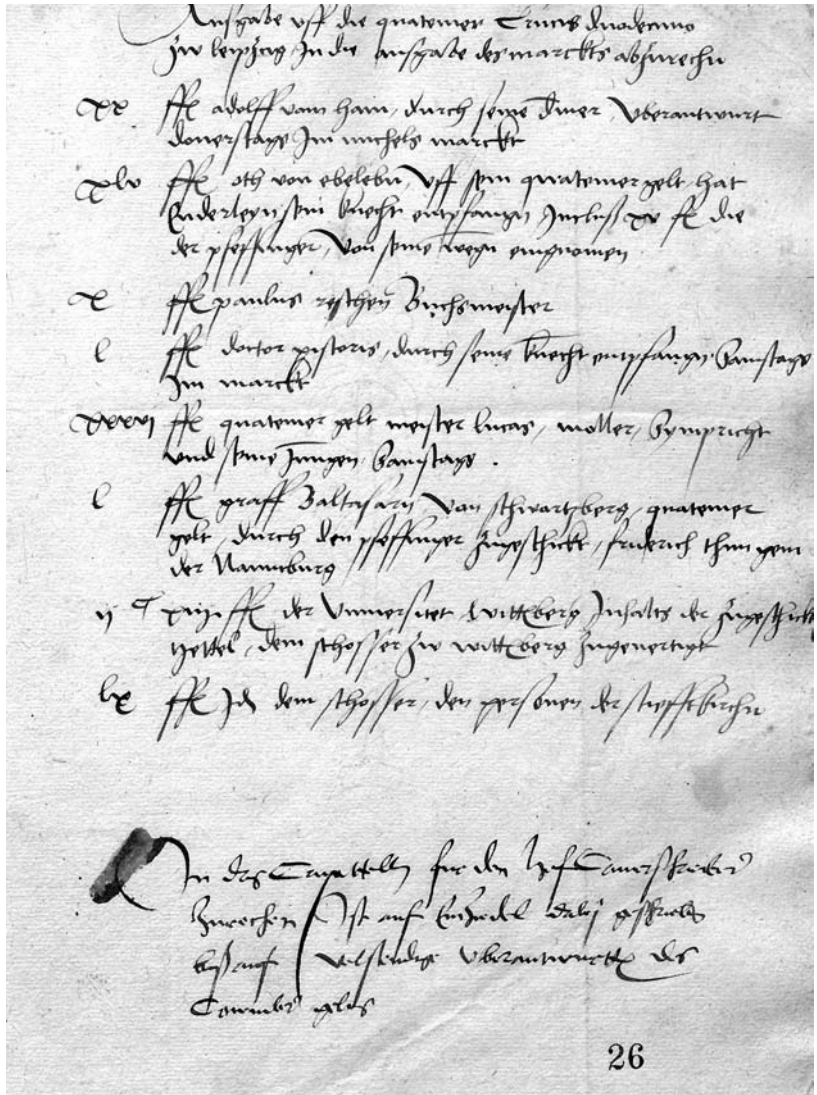 Ausgabe vff die quatemer Crucis duodecimo
zw leipczig In die ausgabe des marckts abzurechn
xx ffl adolff vom hain, durch seine diner, vberantwurt
donerstags Im michels marckt
xlv ffl oth von ebelebn, vff sein quatemer gelt, hat
Enderleyn sein knecht entpfangn Inclusis xv fl die
der pfeffinger, von seine wegn eingnomen
x ffl paulus reschen Buchsmeister
l ffl doctor pistoris, durch seine knecht entpfangn Samstags
Im marckt
xxxvj ffl quatemer gelt meister lucas, moller, Sympricht
vnd seine Jungen, Samstags.
l ffl graff Baltasarn, von schwartzberg, quatemer
gelt, durch den pfeffinger zugeschickt, friderich thun gein
der Naumburg
ij C ffl der Vniuersitet, wittberg Inhalts der zugeschickt
zettel, dem schosser zw wittberg zugeuertigt
lx ffl dem schosser, den personen der stiefftkirchn
In das für den
zurechen Ist auf gschriben
bis auf volstendige vberantwurtt des
26